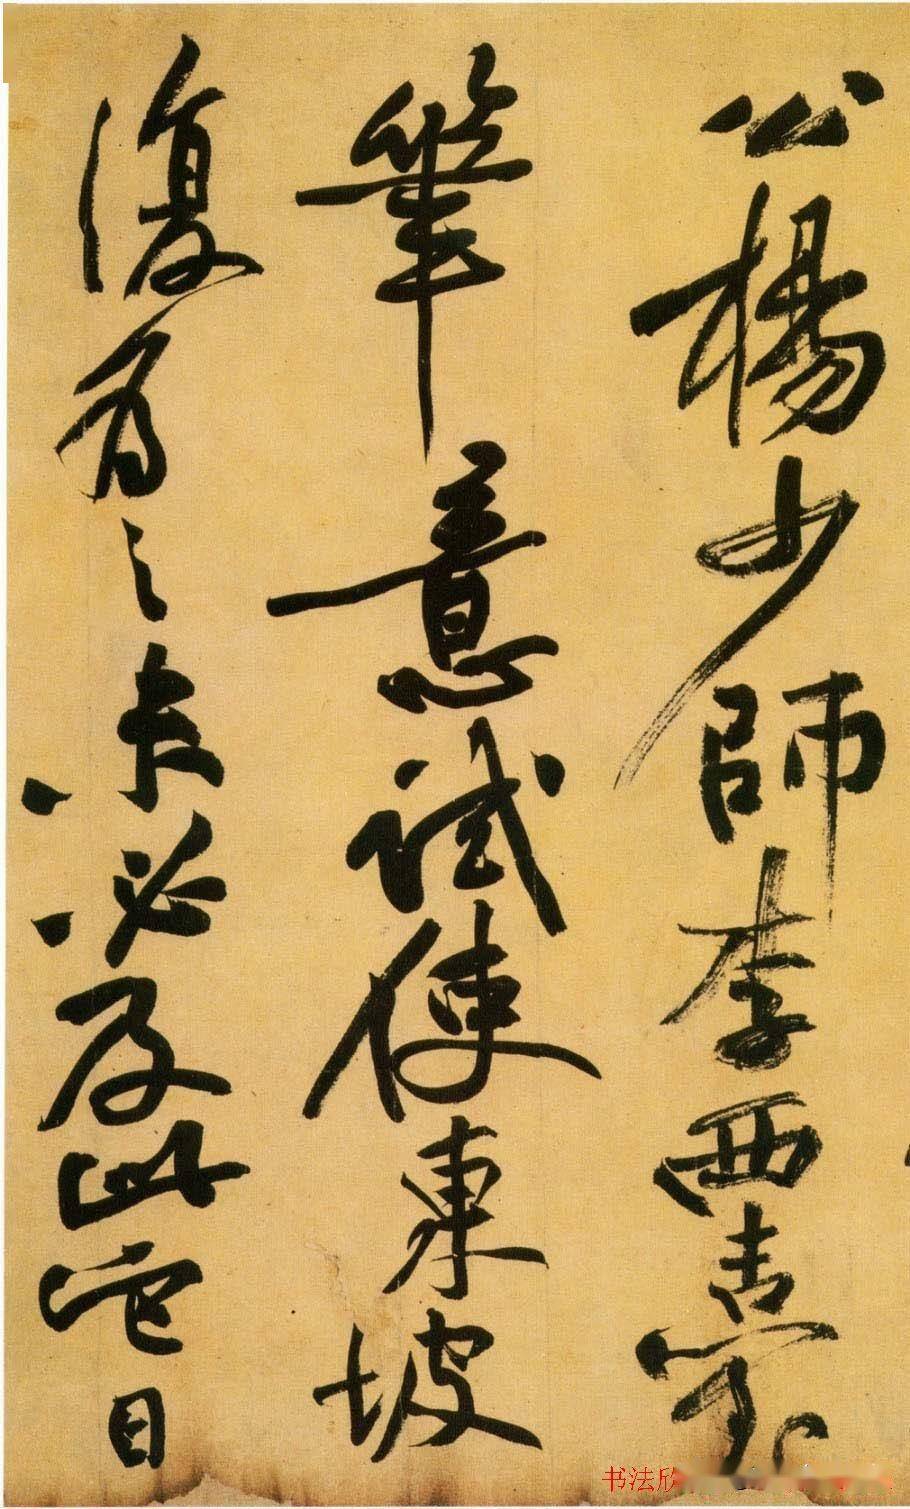 公楊少師李西臺
筆意試使東坡
復為之未必及此它日
书法欣